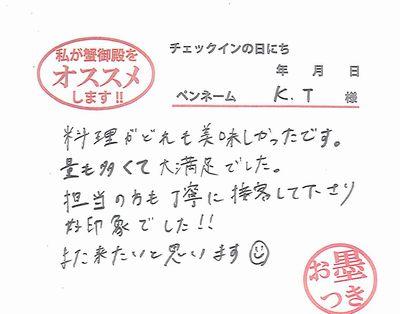 私が蟹御殿を
オススメ
します!!
チェックインの日にち
年 月 日
ペンネーム K.T 様
料理がどれも美味しかったです。
量も多くて大満足でした。
担当の方も丁寧に接客して下さり
好印象でした!!
また来たいと思います
お墨
つき